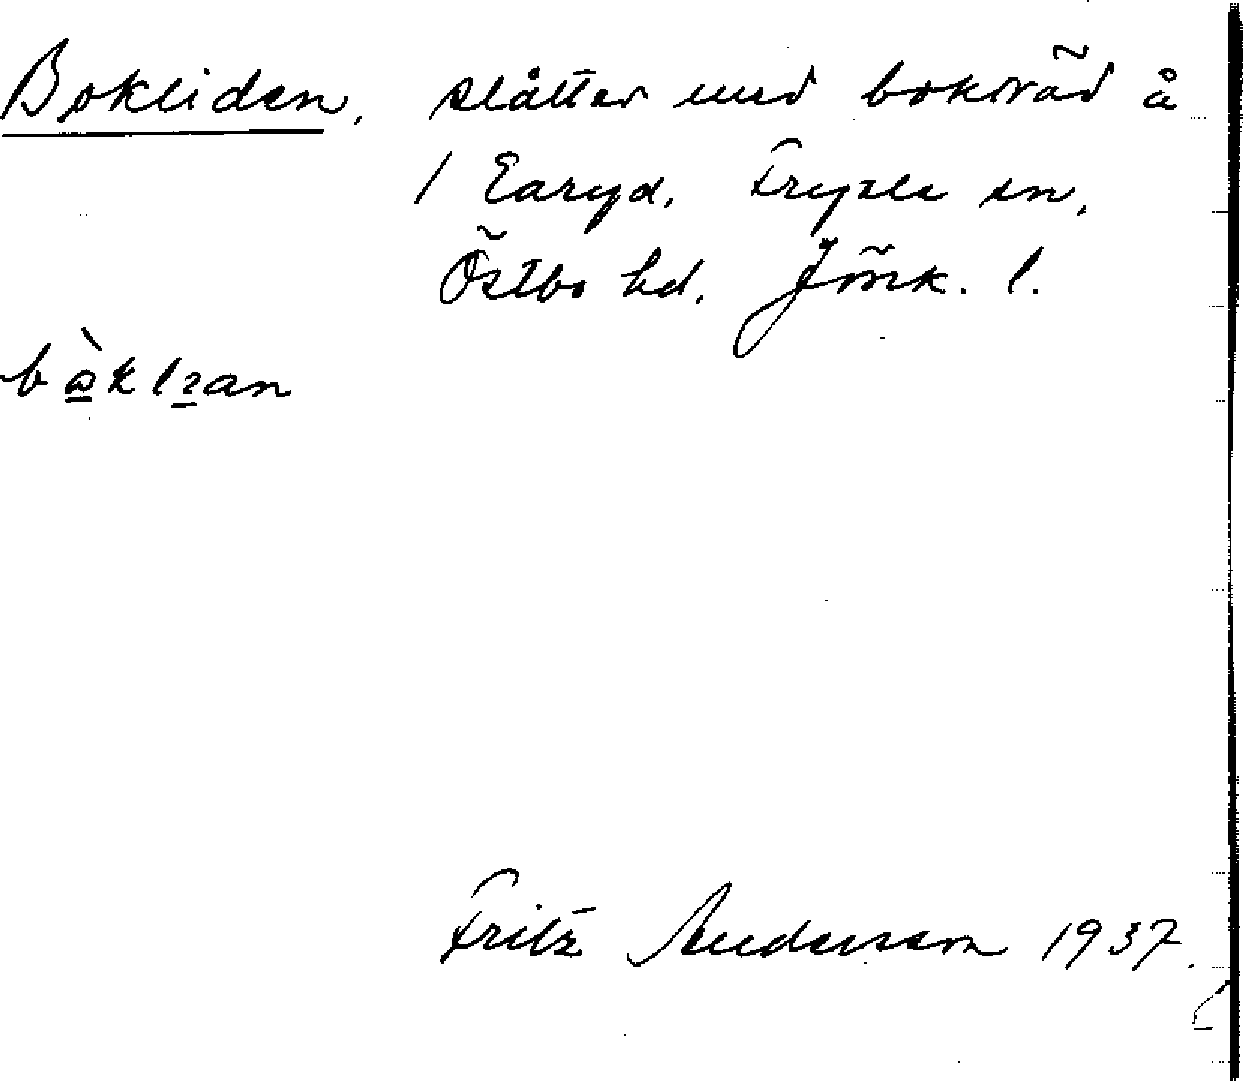 Bokliden, slåtter med bokträd å
1 Earyd. Fryele sn,
Östbo hd. Jönk. l.
Fritz Andersson 1937.